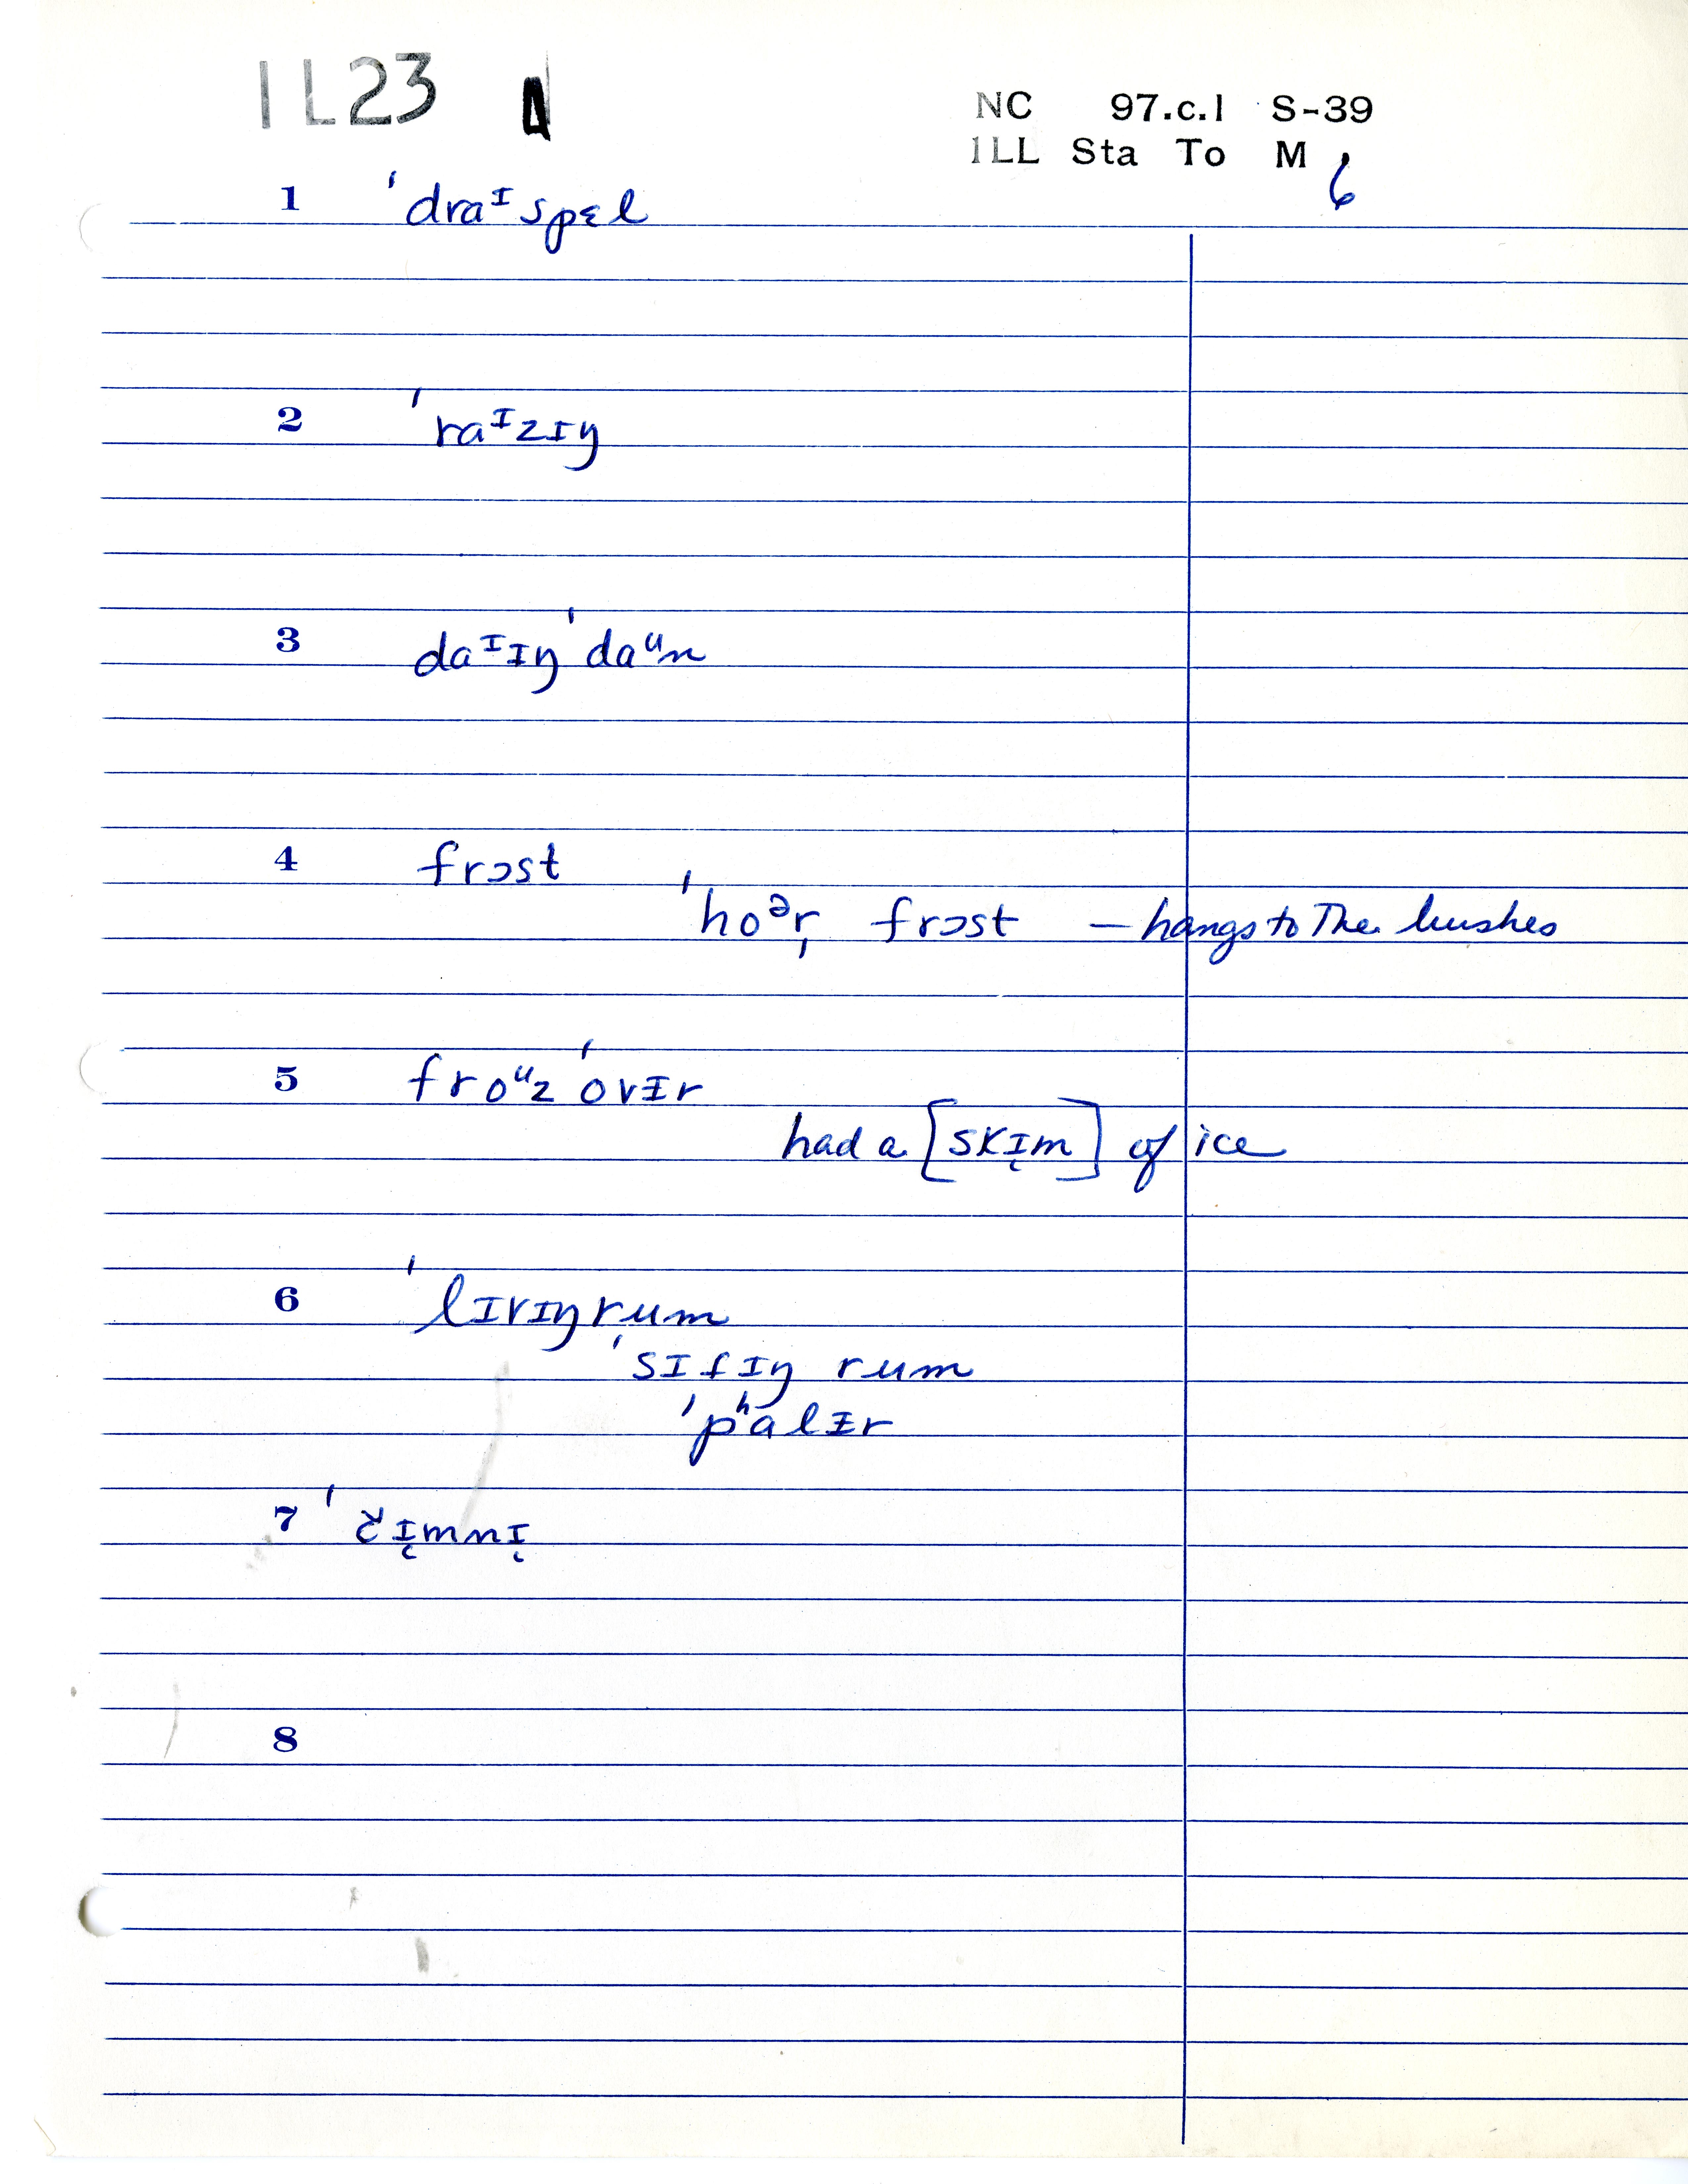 IL23
NC 97.c.1 S-39
ILL Sta To M 6
1 'draᴵspɛl
2 'raᴵzɪŋ
3 daᴵɪŋ'daᵘn
4 frɔst
'hoᵊr̩ frɔst — hangs to The bushes
5 froᵘz'ovɪ̵r
had a [skɪ̜m] of ice
6 'lɪvɪŋrum
'sɪtɪŋ rum
'pʰalɪ̵r
7 'čɪ̜mnɪ̜
8